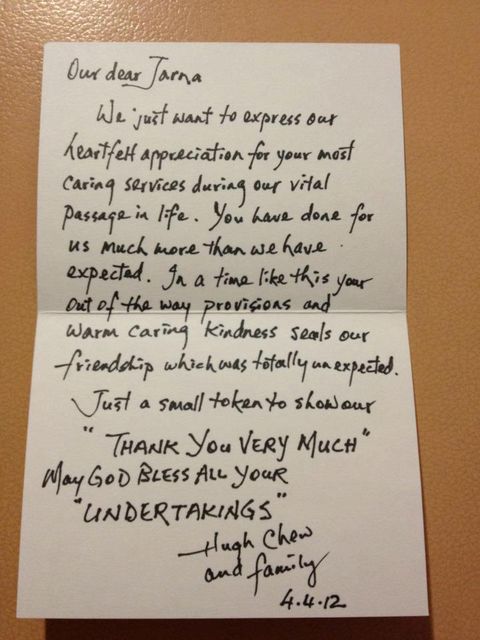 Our dear Jarna
We just want to express our
heartfelt appreciation for your most
caring services during our vital
passage in life. You have done for
us much more than we have
expected. In a time like this your
out of the way provisions and
warm caring kindness seals our
friendship which was totally unexpected.
Just a small token to show our
"THANK YOU VERY MUCH"
May GOD BLESS ALL YOUR
"UNDERTAKINGS"
Hugh Chew
and family
4.4.12